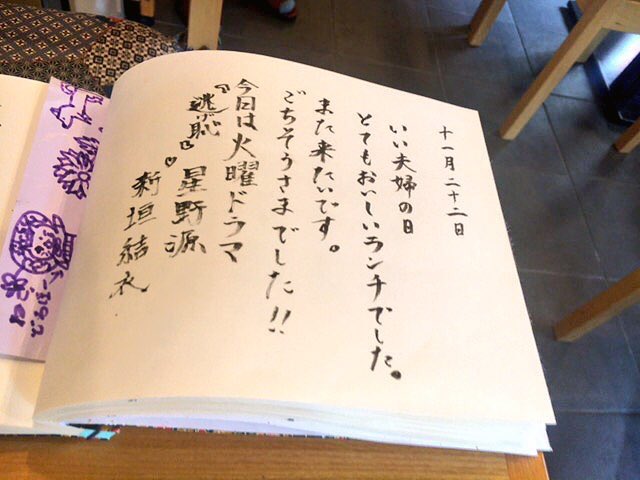 十一月二十二日
いい夫婦の日
とてもおいしいランチでした。
また来たいです。
ごちそうさまでした!!
今日は火曜ドラマ
『逃恥』♡ 星野源
新垣結衣